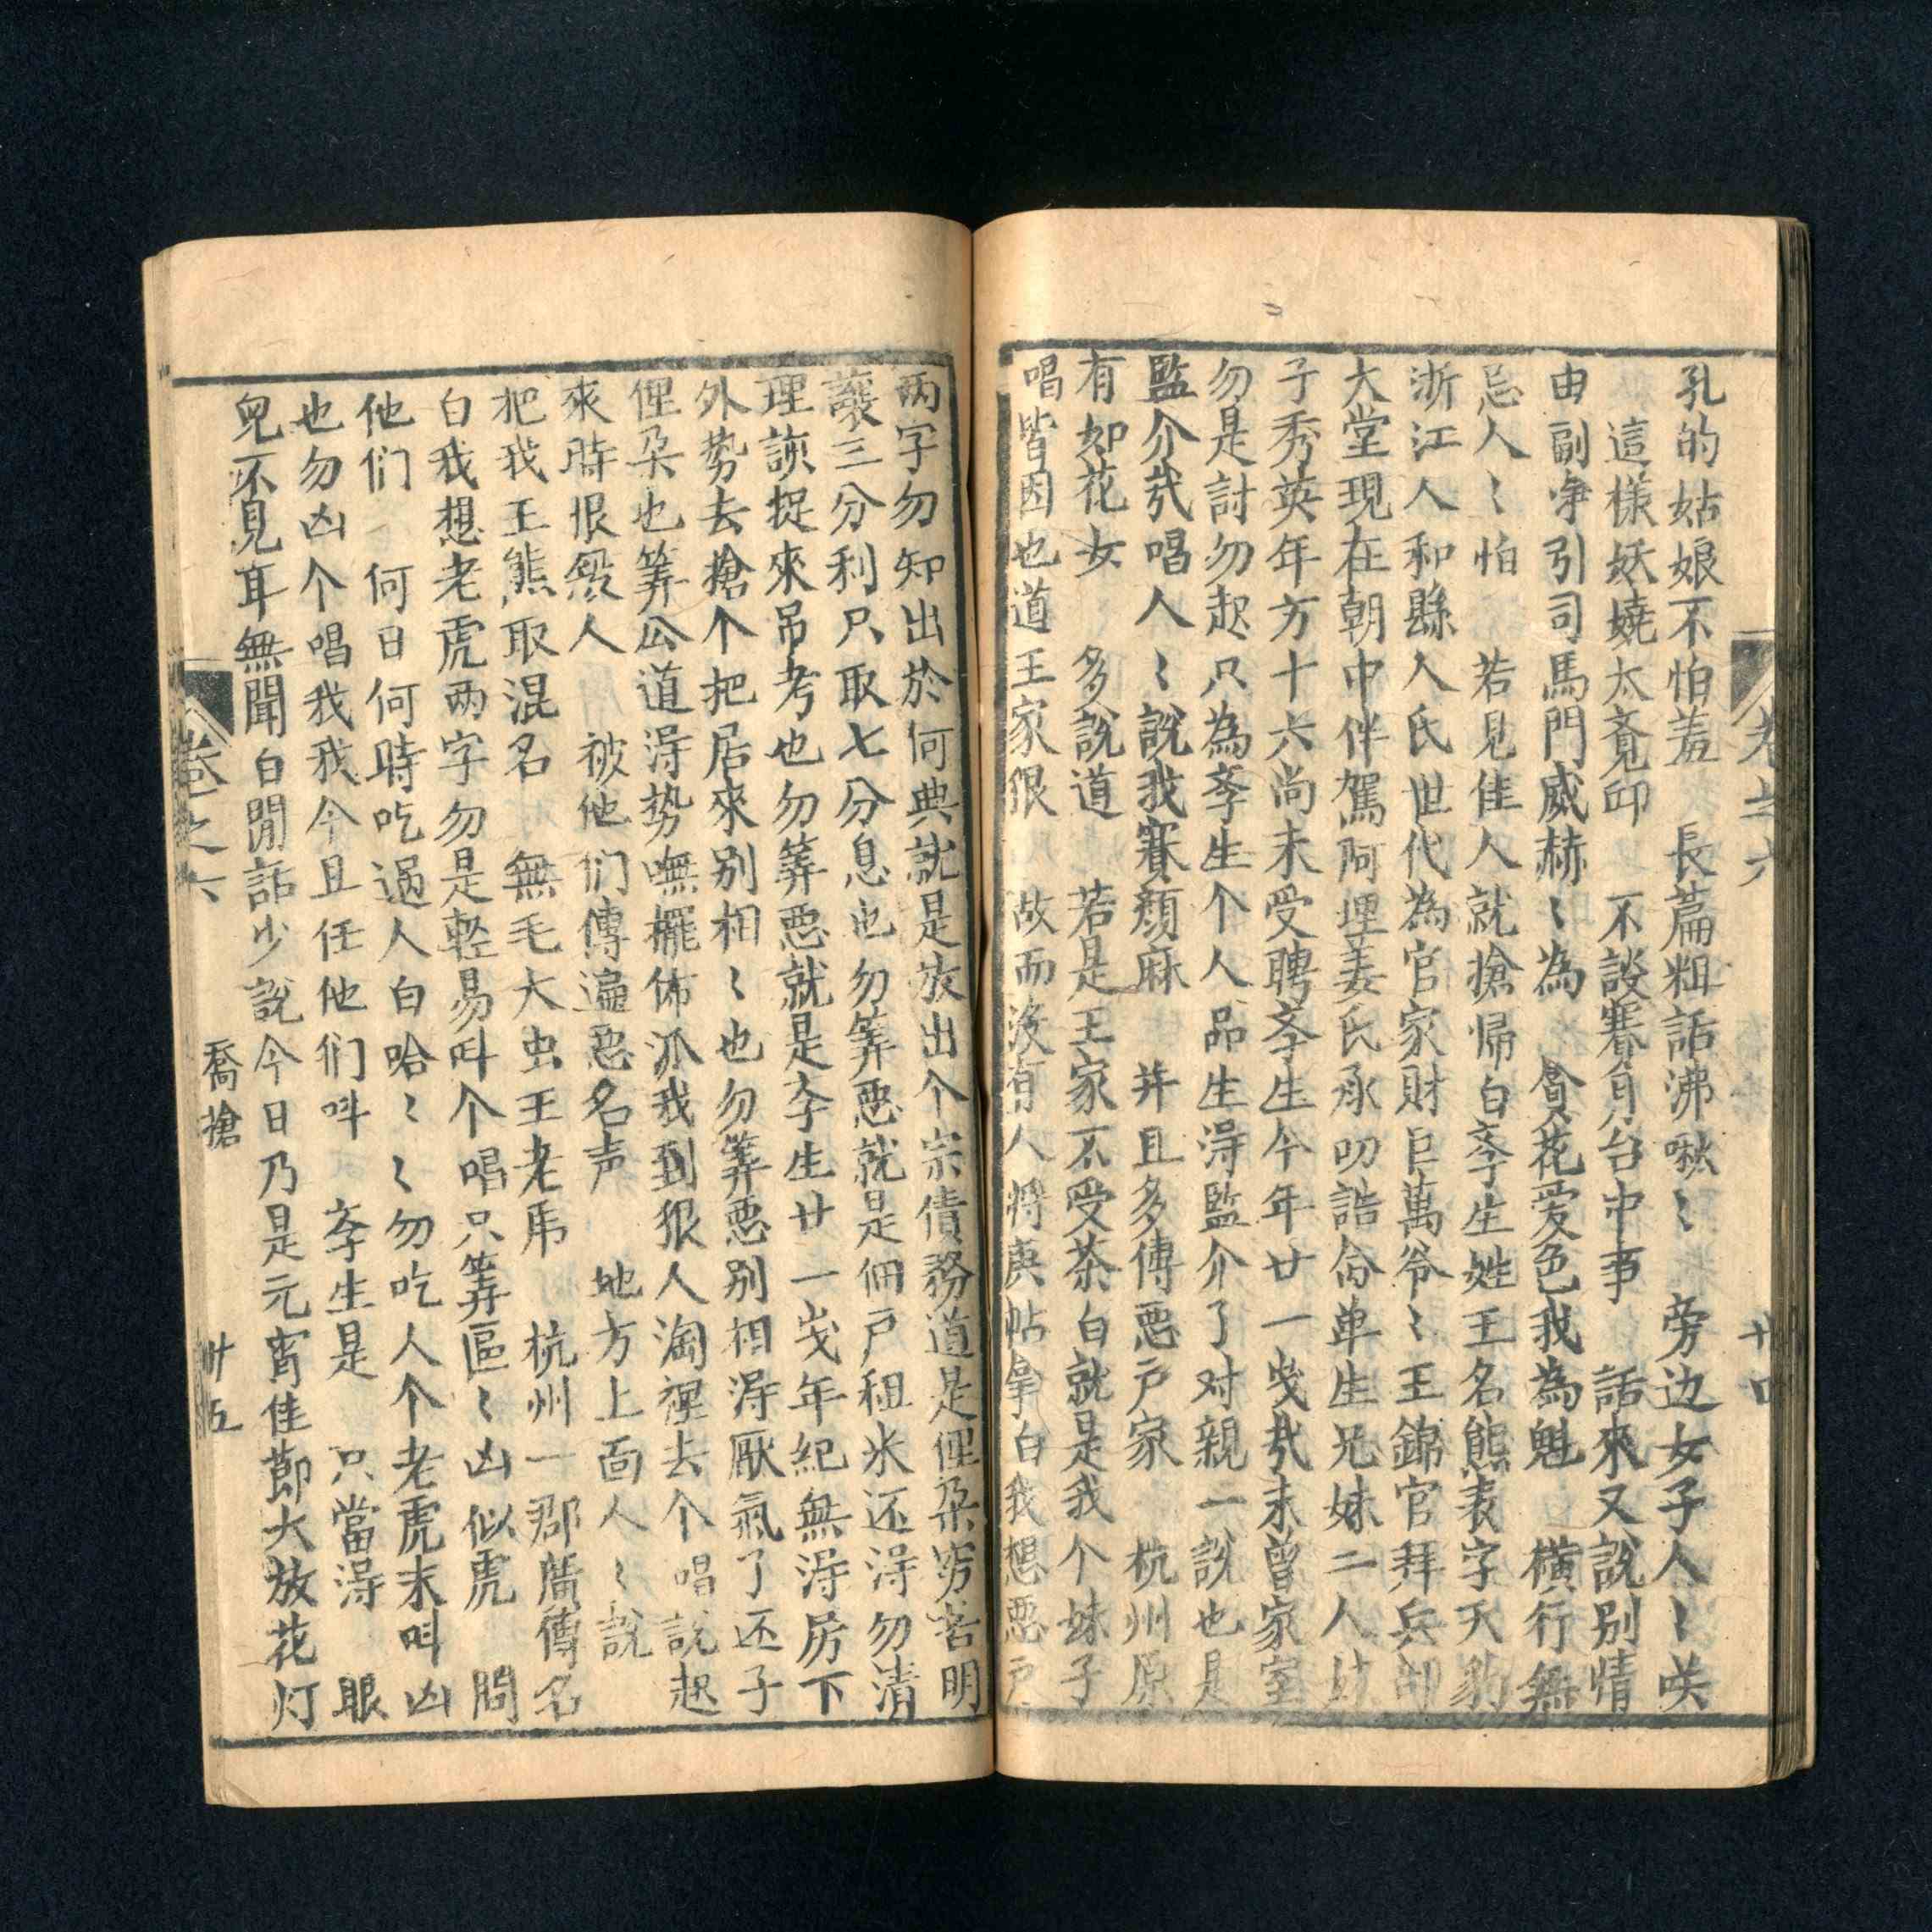 卷之六
十四
孔的姑娘不怕羞 長篇粗話沸啾〻 旁边女子人〻咲
這樣妖嬈太覔卬 不談賽身台中事 話來又說別情
由副净引司馬門威赫〻為 貪花爱色我為魁 橫行無
忌人〻怕 若見佳人就搶帰白李生姓王名熊表字天豹
浙江人和縣人氏世代為官家財巨萬爷〻王錦官拜兵部
大堂現在朝中伴駕阿埋姜氏承叨誥侖单生兄妹二人妹
子秀英年方十六尚未受聘李生今年廿一歲哉未曾家室
勿是討勿起只為李生个人品生淂監介了对親一說也是
監介哉唱人〻說我賽顏麻 并且多傳惡戸家 杭州原
有如花女 多說道 若是王家不受茶白就是我个妹子
唱皆因也道王家狠 故而沒有人将庚帖拿白我想惡戸
两字勿知出於何典就是放出个宗債務道是俚朶穷苦明
讓三分利只取七分息也勿筭惡就是佃戸租米还淂勿清
理該捉來吊考也勿筭惡就是李生廿一歲年紀無淂房下
外势去搶个把居來别相〻也勿筭惡别相淂厭氣了还子
俚朶也筭公道淂势嘸擺佈派我到狠人淘裡去个唱說起
來時恨殺人 被他们傳遍惡名声 地方上面人〻說
把我王熊取混名 無毛大虫王老虎 杭州一郡廣傳名
白我想老虎两字勿是輕易呌个唱只筭區〻凶似虎 問
他们 何日何時吃過人白哈〻〻勿吃人个老虎末呌凶
也勿凶个唱我我今且任他们呌 李生是 只當淂 眼
兒不見耳無聞白閒話少說今日乃是元宵佳節大放花灯
卷之六
喬搶
廿五